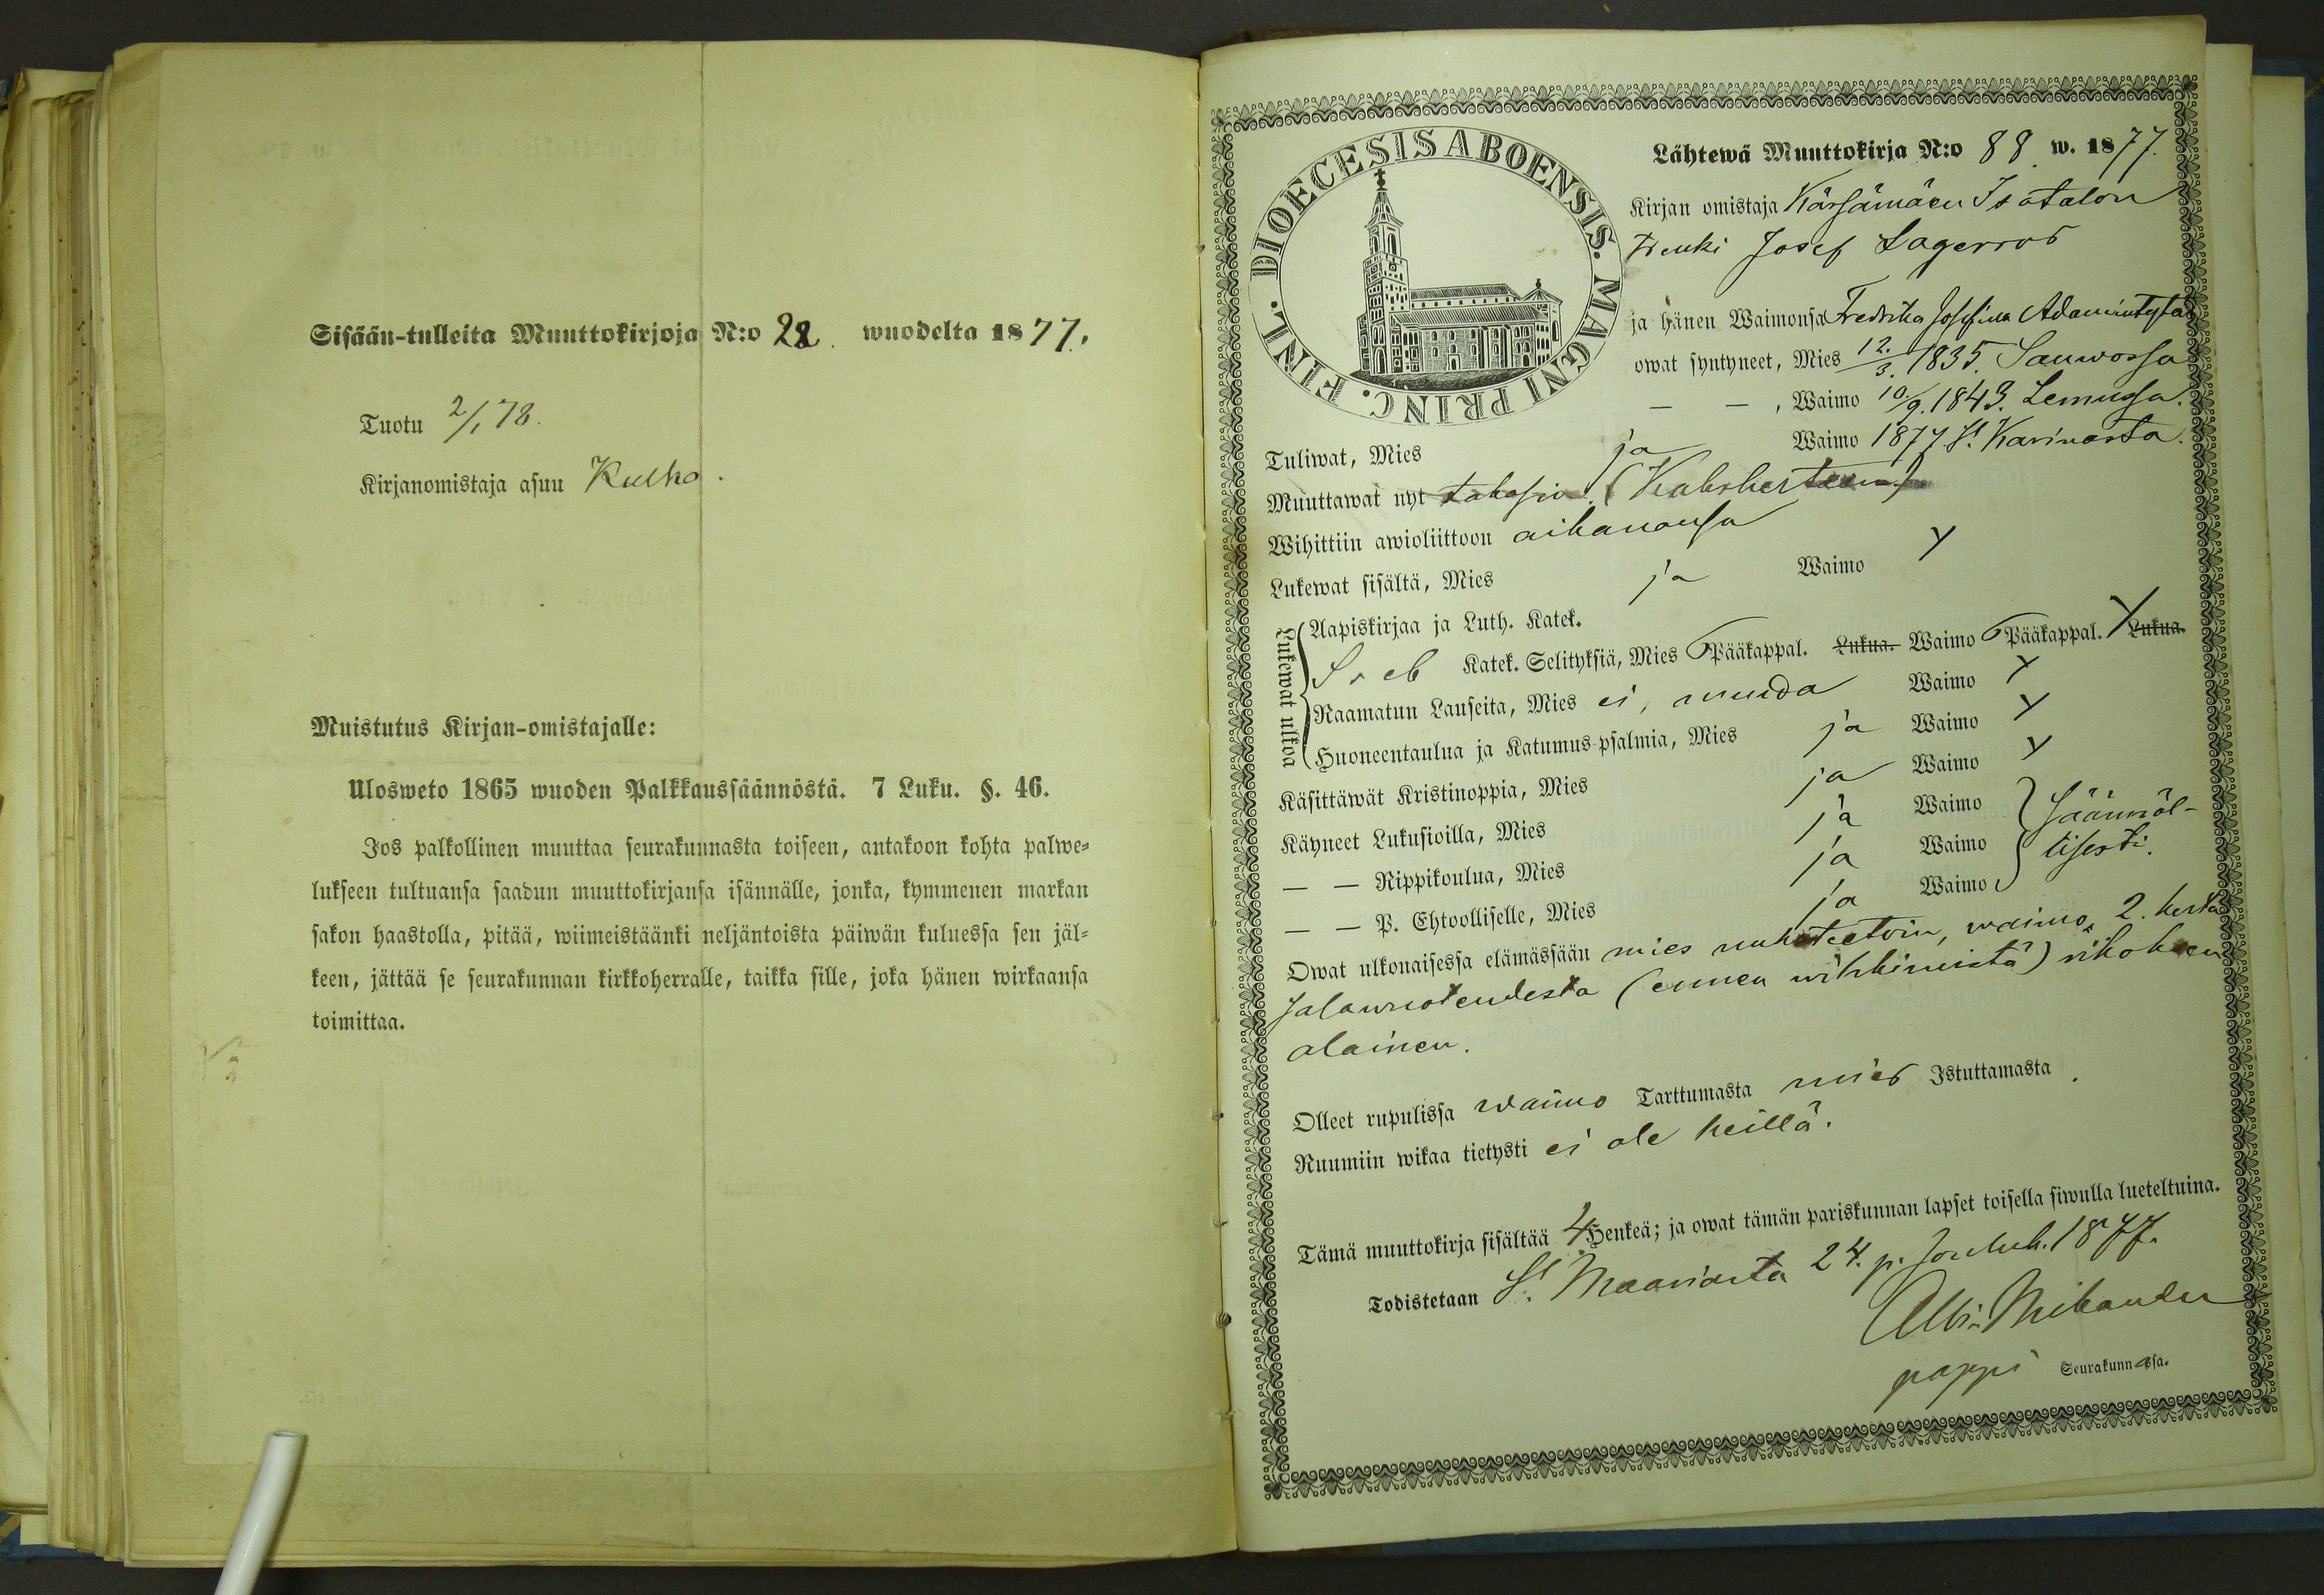 Sisään-tulleita Muuttokirjoja N:o 22. wuodelta 1877.
Tuotu 2/1 78.
Kirjanomistaja asuu Kulho.
Muistutus Kirjan-omistajalle:
Ulosweto 1865 wuoden Palkkaussäännöstä. 7 Luku. §. 46.
Jos palkollinen muuttaa seurakunnasta toiseen, antakoon kohta palwe=
lukseen tultuansa saadun muuttokirjansa isännälle, jonka, kymmenen markan
sakon haastolla, pitää, wiimeistäänki neljäntoista päiwän kuluessa sen jäl=
keen, jättää se seurakunnan kirkkoherralle, taikka sille, joka hänen wirkaansa
toimittaa.
DIOECESIS ABOENSIS. MAGNI PRINC. FINL.
Lähtewä Muuttokirja N:o 88 w. 1877.
Kirjan omistaja Kärsämäen Isotalon
Renki Josef Lagerros
ja hänen Waimonsa Fredrika Josefina Adamintytär
owat syntyneet, Mies 12./3. 1835. Sauwossa
— — , Waimo 10./9. 1843. Lemussa.
Tuliwat, Mies ja Waimo 1877 St Karinasta.
Muuttawat nyt takasin. (Kakskertaan)
Wihittiin awioliittoon aikanansa
Lukewat sisältä, Mies ja Waimo Y
Lukewat ulkoa
Aapiskirjaa ja Luth. Katek.
Katek. Selityksiä, Mies 6 Pääkappal. Lukua. Waimo 6 Pääkappal. Y Lukua.
Raamatun Lauseita, Mies ei, muuda Waimo Y
Huoneentaulua ja Katumus-psalmia, Mies ja Waimo Y
Käsittäwät Kristinoppia, Mies ja Waimo Y
Käyneet Lukusioilla, Mies ja Waimo } säännöl-
— — Rippikoulua, Mies ja Waimo } lisesti.
— — P. Ehtoolliselle, Mies ja Waimo
Owat ulkonaisessa elämässään mies nuhteetoin, waimo, 2. kerta
salawuoteudesta (ennen wihkimistä) rikoksen
alainen.
Olleet rupulissa waimo Tarttumasta mies Istuttamasta.
Ruumiin wikaa tietysti ei ole heillä.
Tämä muuttokirja sisältää 4 Henkeä; ja owat tämän pariskunnan lapset toisella siwulla lueteltuina.
Todistetaan St. Maariasta 24. p. Jouluk. 1877.
Alb. Mikander
pappi Seurakunnassa.